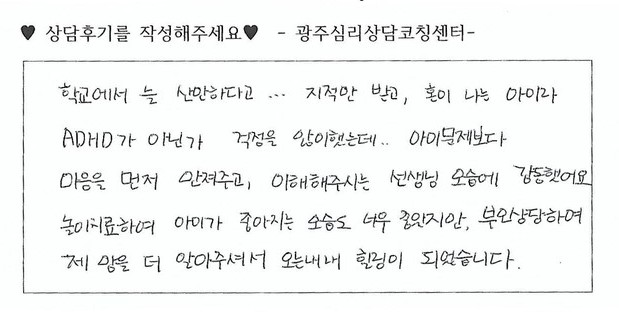 ♥ 상담후기를 작성해주세요♥ - 광주심리상담코칭센터-
학교에서 늘 산만하다고 … 지적만 받고, 혼이 나는 아이라
ADHD가 아닌가 걱정을 많이했는데.. 아이문제보다
마음을 먼저 만져주고, 이해해주시는 선생님 모습에 감동했어요
놀이치료하며 아이가 좋아지는 모습도 너무 좋았지만, 부모상담하며
제 맘을 더 알아주셔서 오는내내 힐링이 되었습니다.